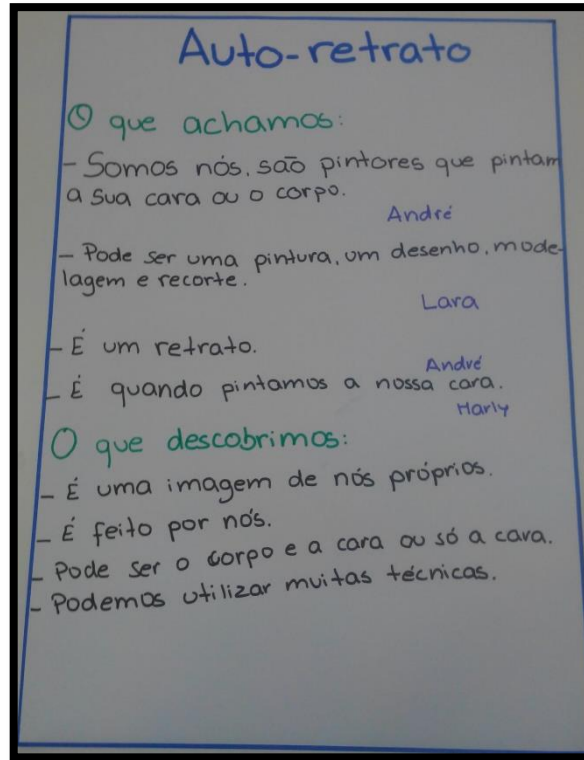 Auto-retrato
O que achamos:
- Somos nós, são pintores que pintam
a sua cara ou o corpo.
André
- Pode ser uma pintura, um desenho, mode-
lagem e recorte.
Lara
- É um retrato.
André
- É quando pintamos a nossa cara.
Harly
O que descobrimos:
- É uma imagem de nós próprios.
- É feito por nós.
- Pode ser o corpo e a cara ou só a cara.
- Podemos utilizar muitas técnicas.